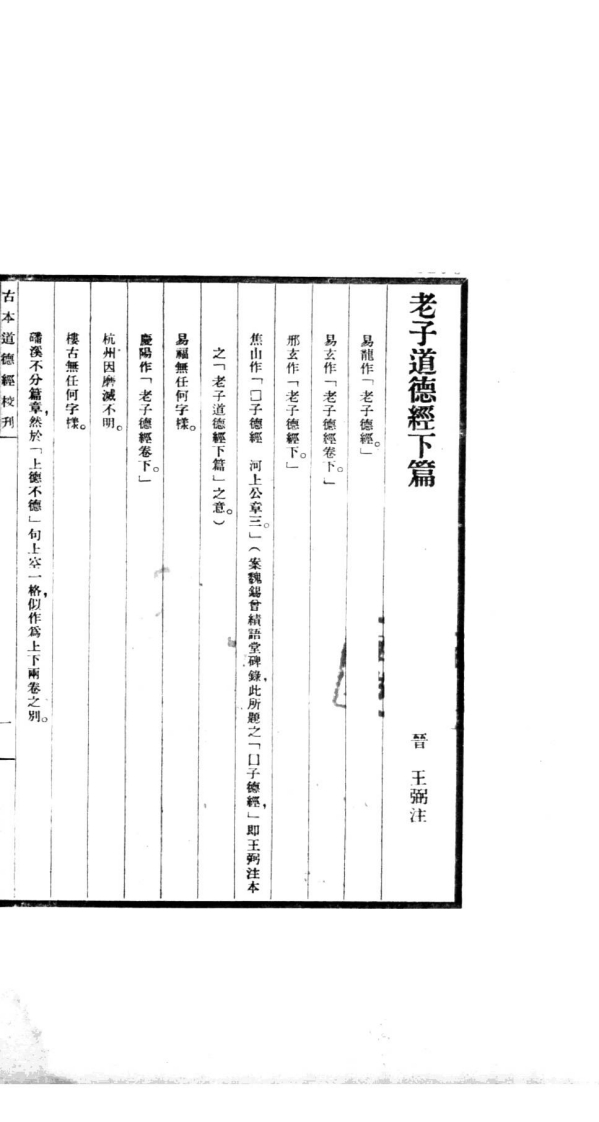 老子道德經下篇
晉　王弼注
易龍作「老子德經。」
易玄作「老子德經卷下。」
邢玄作「老子德經下。」
焦山作「□子德經　河上公章三。」(案魏錫曾績語堂碑錄，此所題之「□子德經，」即王弼注本
之「老子道德經下篇」之意。)
易福無任何字樣。
慶陽作「老子德經卷下。」
杭州因磨滅不明。
樓古無任何字樣。
磻溪不分篇章，然於「上德不德」句上空一格，似作爲上下兩卷之別。
古本道德經校刊
一